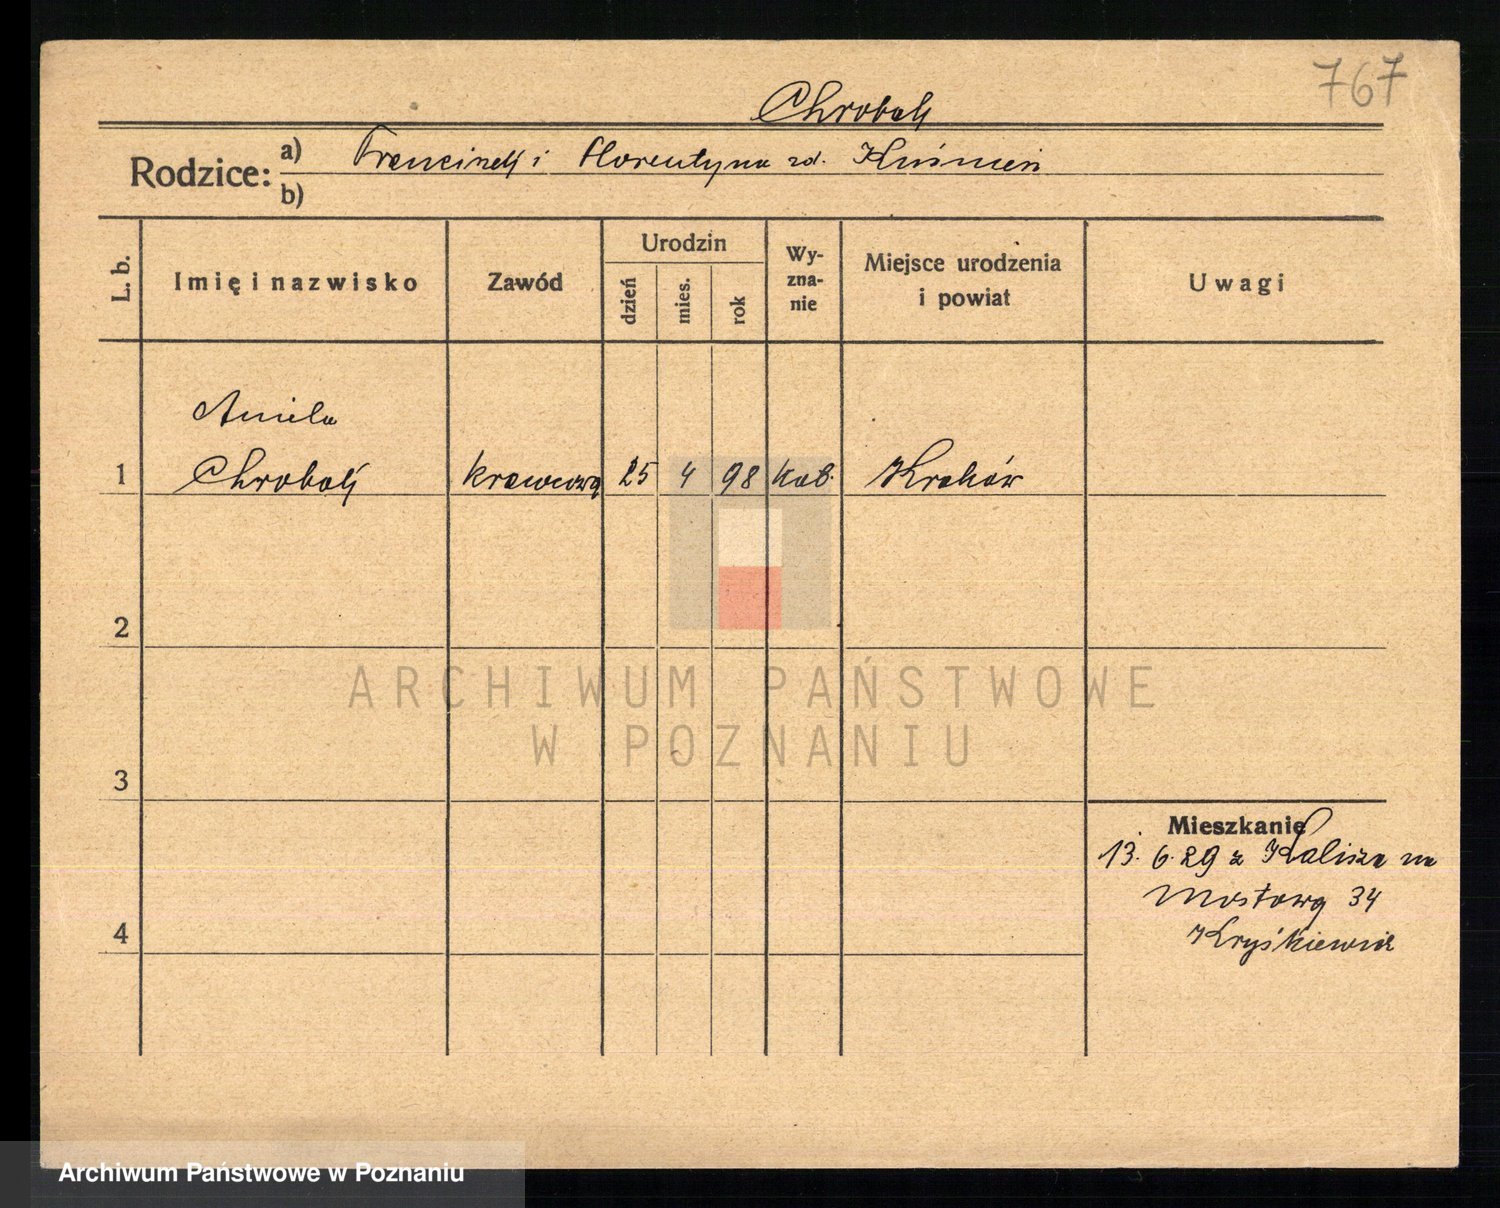 767
Chrobak
Rodzice: a) Franciszek i Florentyna zd. Kuśmierz
b)
L. b. Imię i nazwisko Zawód Urodzin dzień mies. rok Wyznanie Miejsce urodzenia i powiat Uwagi
Aniela
1 Chrobak krawcowa 25 4 98 kat. Kraków
2
ARCHIWUM PAŃSTWOWE
W POZNANIU
3
Mieszkanie
13. 6. 29 z Kalisza na
Mostowa 34
4 Kryśkiewicz
Archiwum Państwowe w Poznaniu